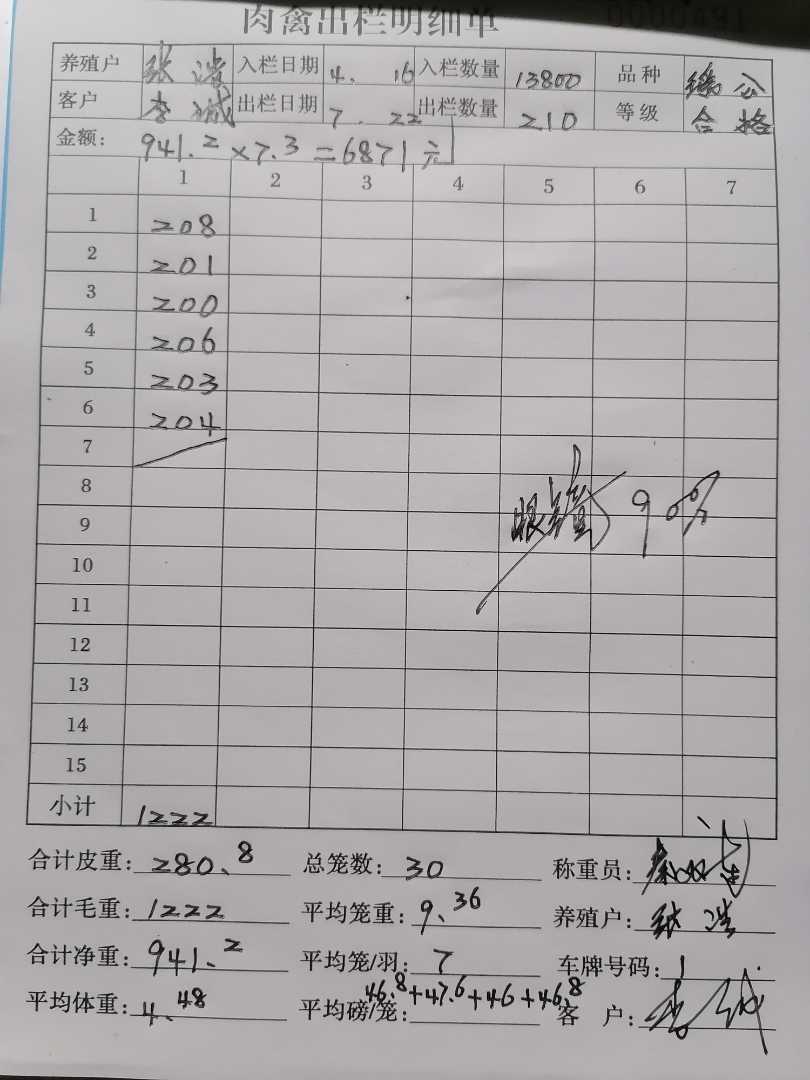 肉禽出栏明细单
养殖户 张浩 入栏日期 4. 16 入栏数量 13800 品种
客户 李诚 出栏日期 7. 22 出栏数量 210 等级 合格
金额: 941.2×7.3=6871元
1 2 3 4 5 6 7
1 208
2 201
3 200
4 206
5 203
6 204
7
8
9
10
11
12
13
14
15
小计 1222
90%
合计皮重: 280.8 总笼数: 30 称重员:
合计毛重: 1222 平均笼重: 9.36 养殖户: 张浩
合计净重: 941.2 平均笼/羽: 7 车牌号码: 1
平均体重: 4.48 平均磅/笼: 46.8+47.6+46+46.8 客 户: